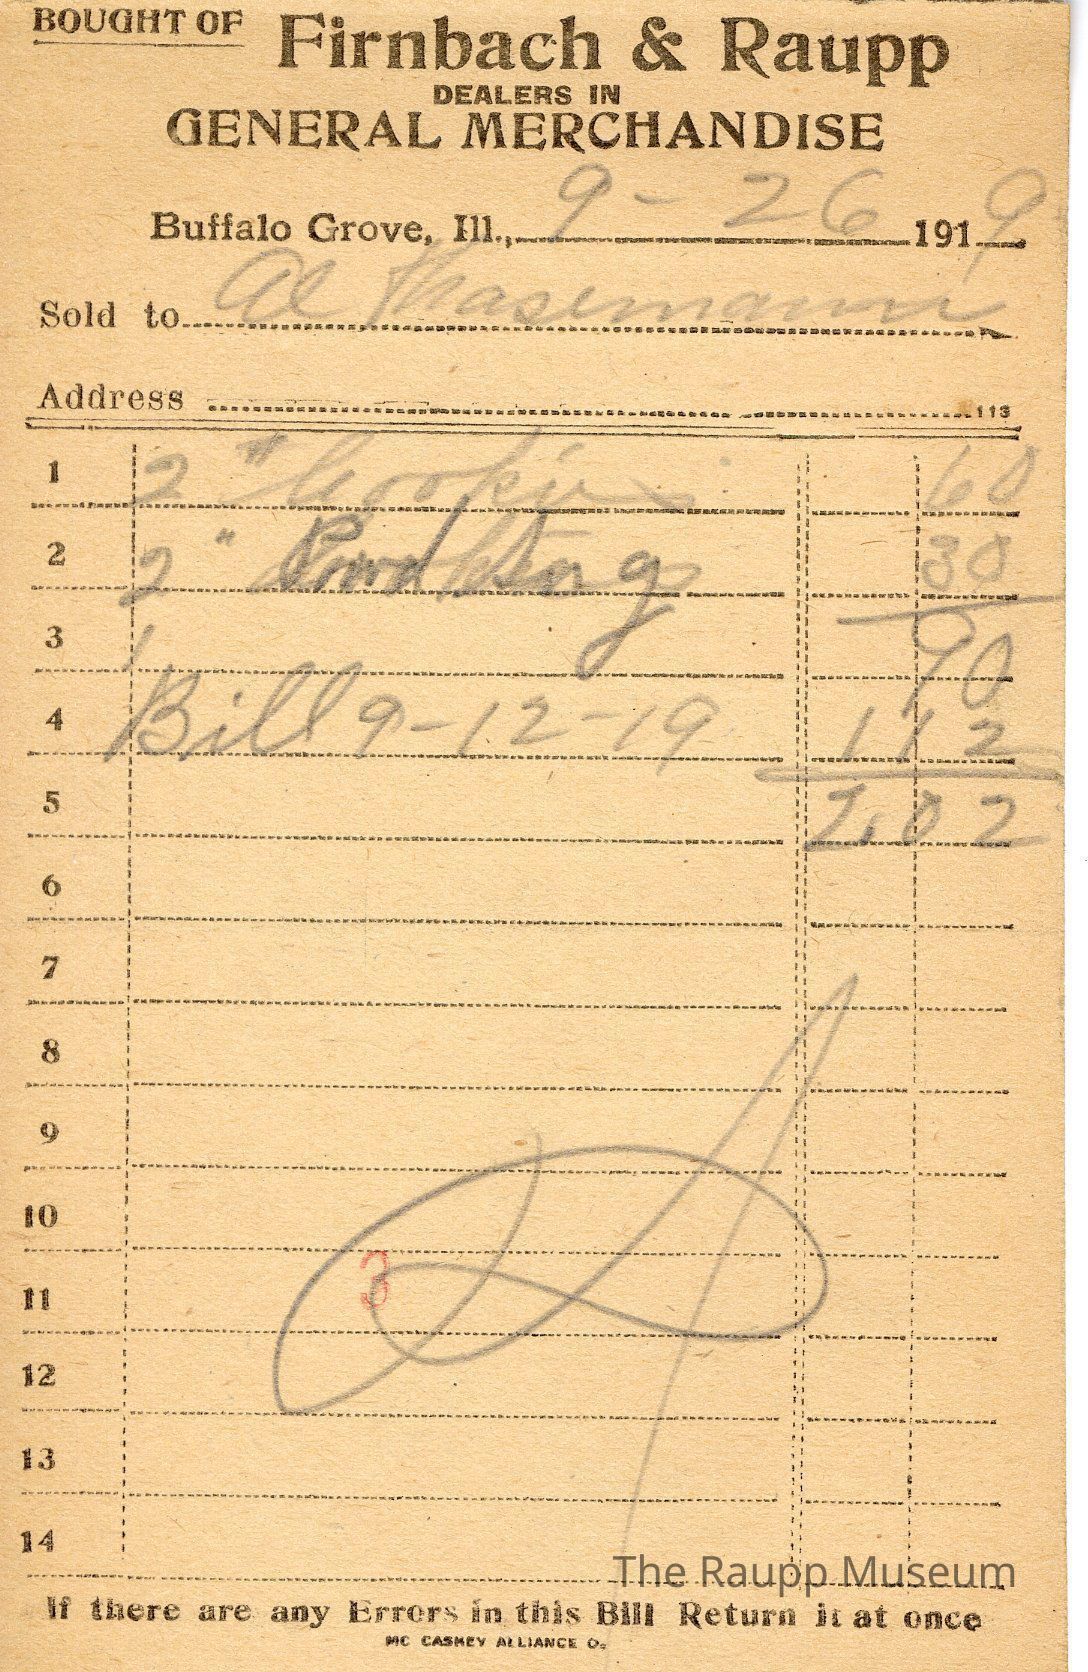 BOUGHT OF Firnbach & Raupp
DEALERS IN
GENERAL MERCHANDISE
Buffalo Grove, Ill., 9-26 1919
Sold to Al Thasemann
Address 113
1 2 # Cookies 60
2 2 " 30
3 90
4 Bill 9-12-19 112
5 2.02
6
7
8
9
10
3
11
12
13
14
The Raupp Museum
If there are any Errors in this Bill Return it at once
MC CASKEY ALLIANCE O.